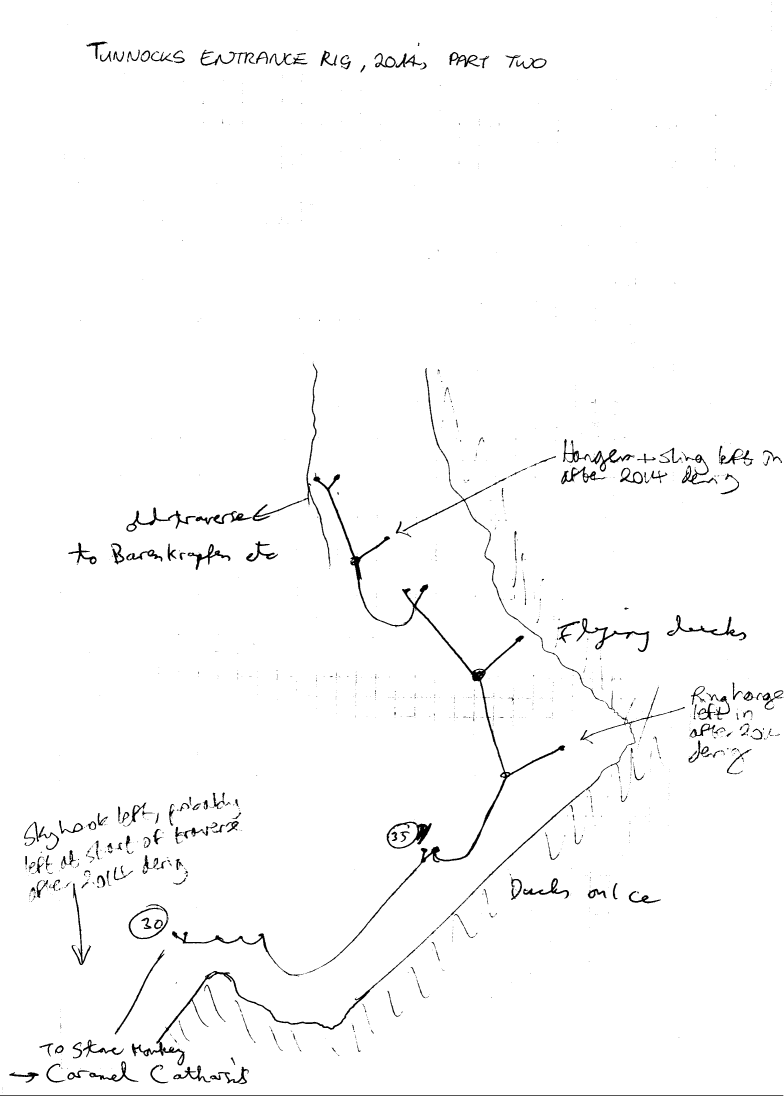 TUNNOCKS ENTRANCE RIG, 2014, PART TWO
Hangers + sling left in
after 2014 derig
old traverse
to Barenkrapfen etc
Flying ducks
Ringhange
left in
after 201
derig
35
Skyhook left, probably
left at start of traverse
after 2014 derig
Ducks on Ice
30
To Stone Monkey
→ Caramel Catharsis